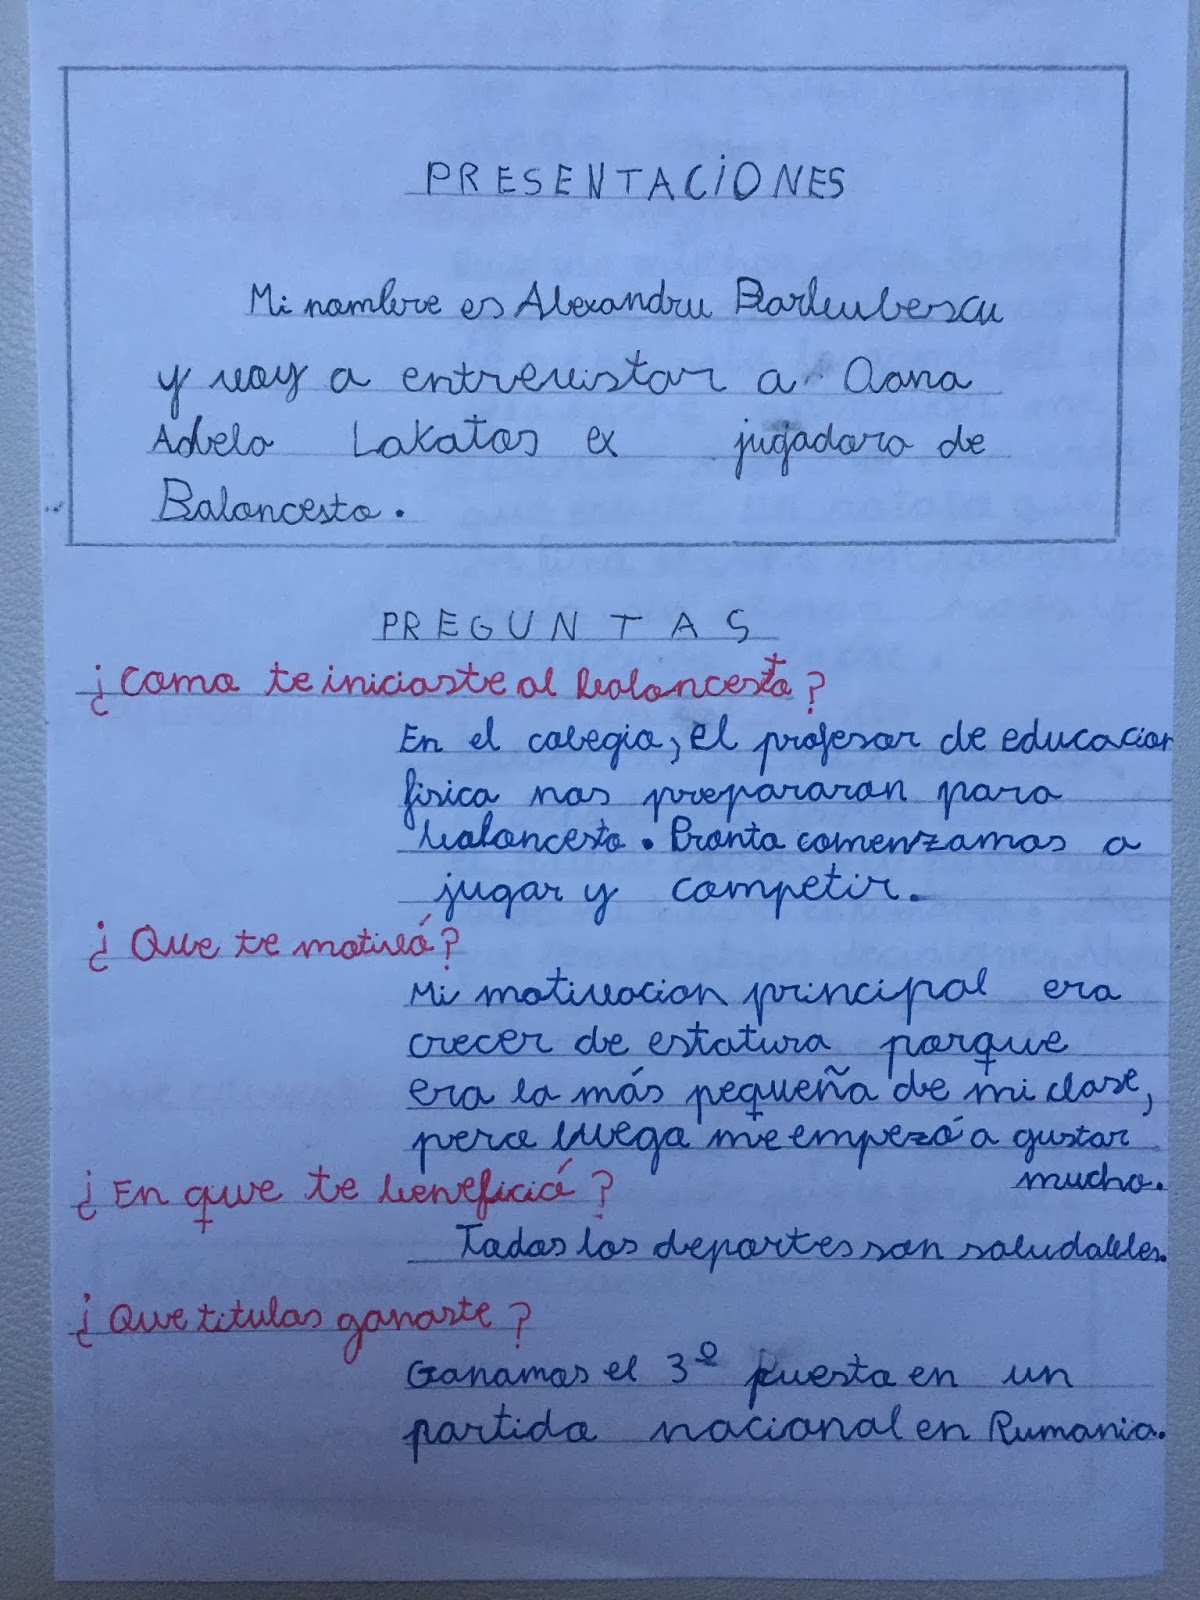 PRESENTACIONES
Mi nombre es Alexandru Barbubescu
y voy a entrevistar a Oana
Adela Lakatos ex jugadora de
Baloncesto.
PREGUNTAS
¿Como te iniciaste al baloncesto?
En el colegio, el profesor de educacion
fisica nos prepararon para
baloncesto. Pronto comenzamos a
jugar y competir.
¿Que te motivó?
Mi motivacion principal era
crecer de estatura porque
era la más pequeña de mi clase,
pero luego me empezó a gustar
mucho.
¿En que te benefició?
Todos los deportes son saludables.
¿Que titulos ganaste?
Ganamos el 3º puesto en un
partido nacional en Rumania.